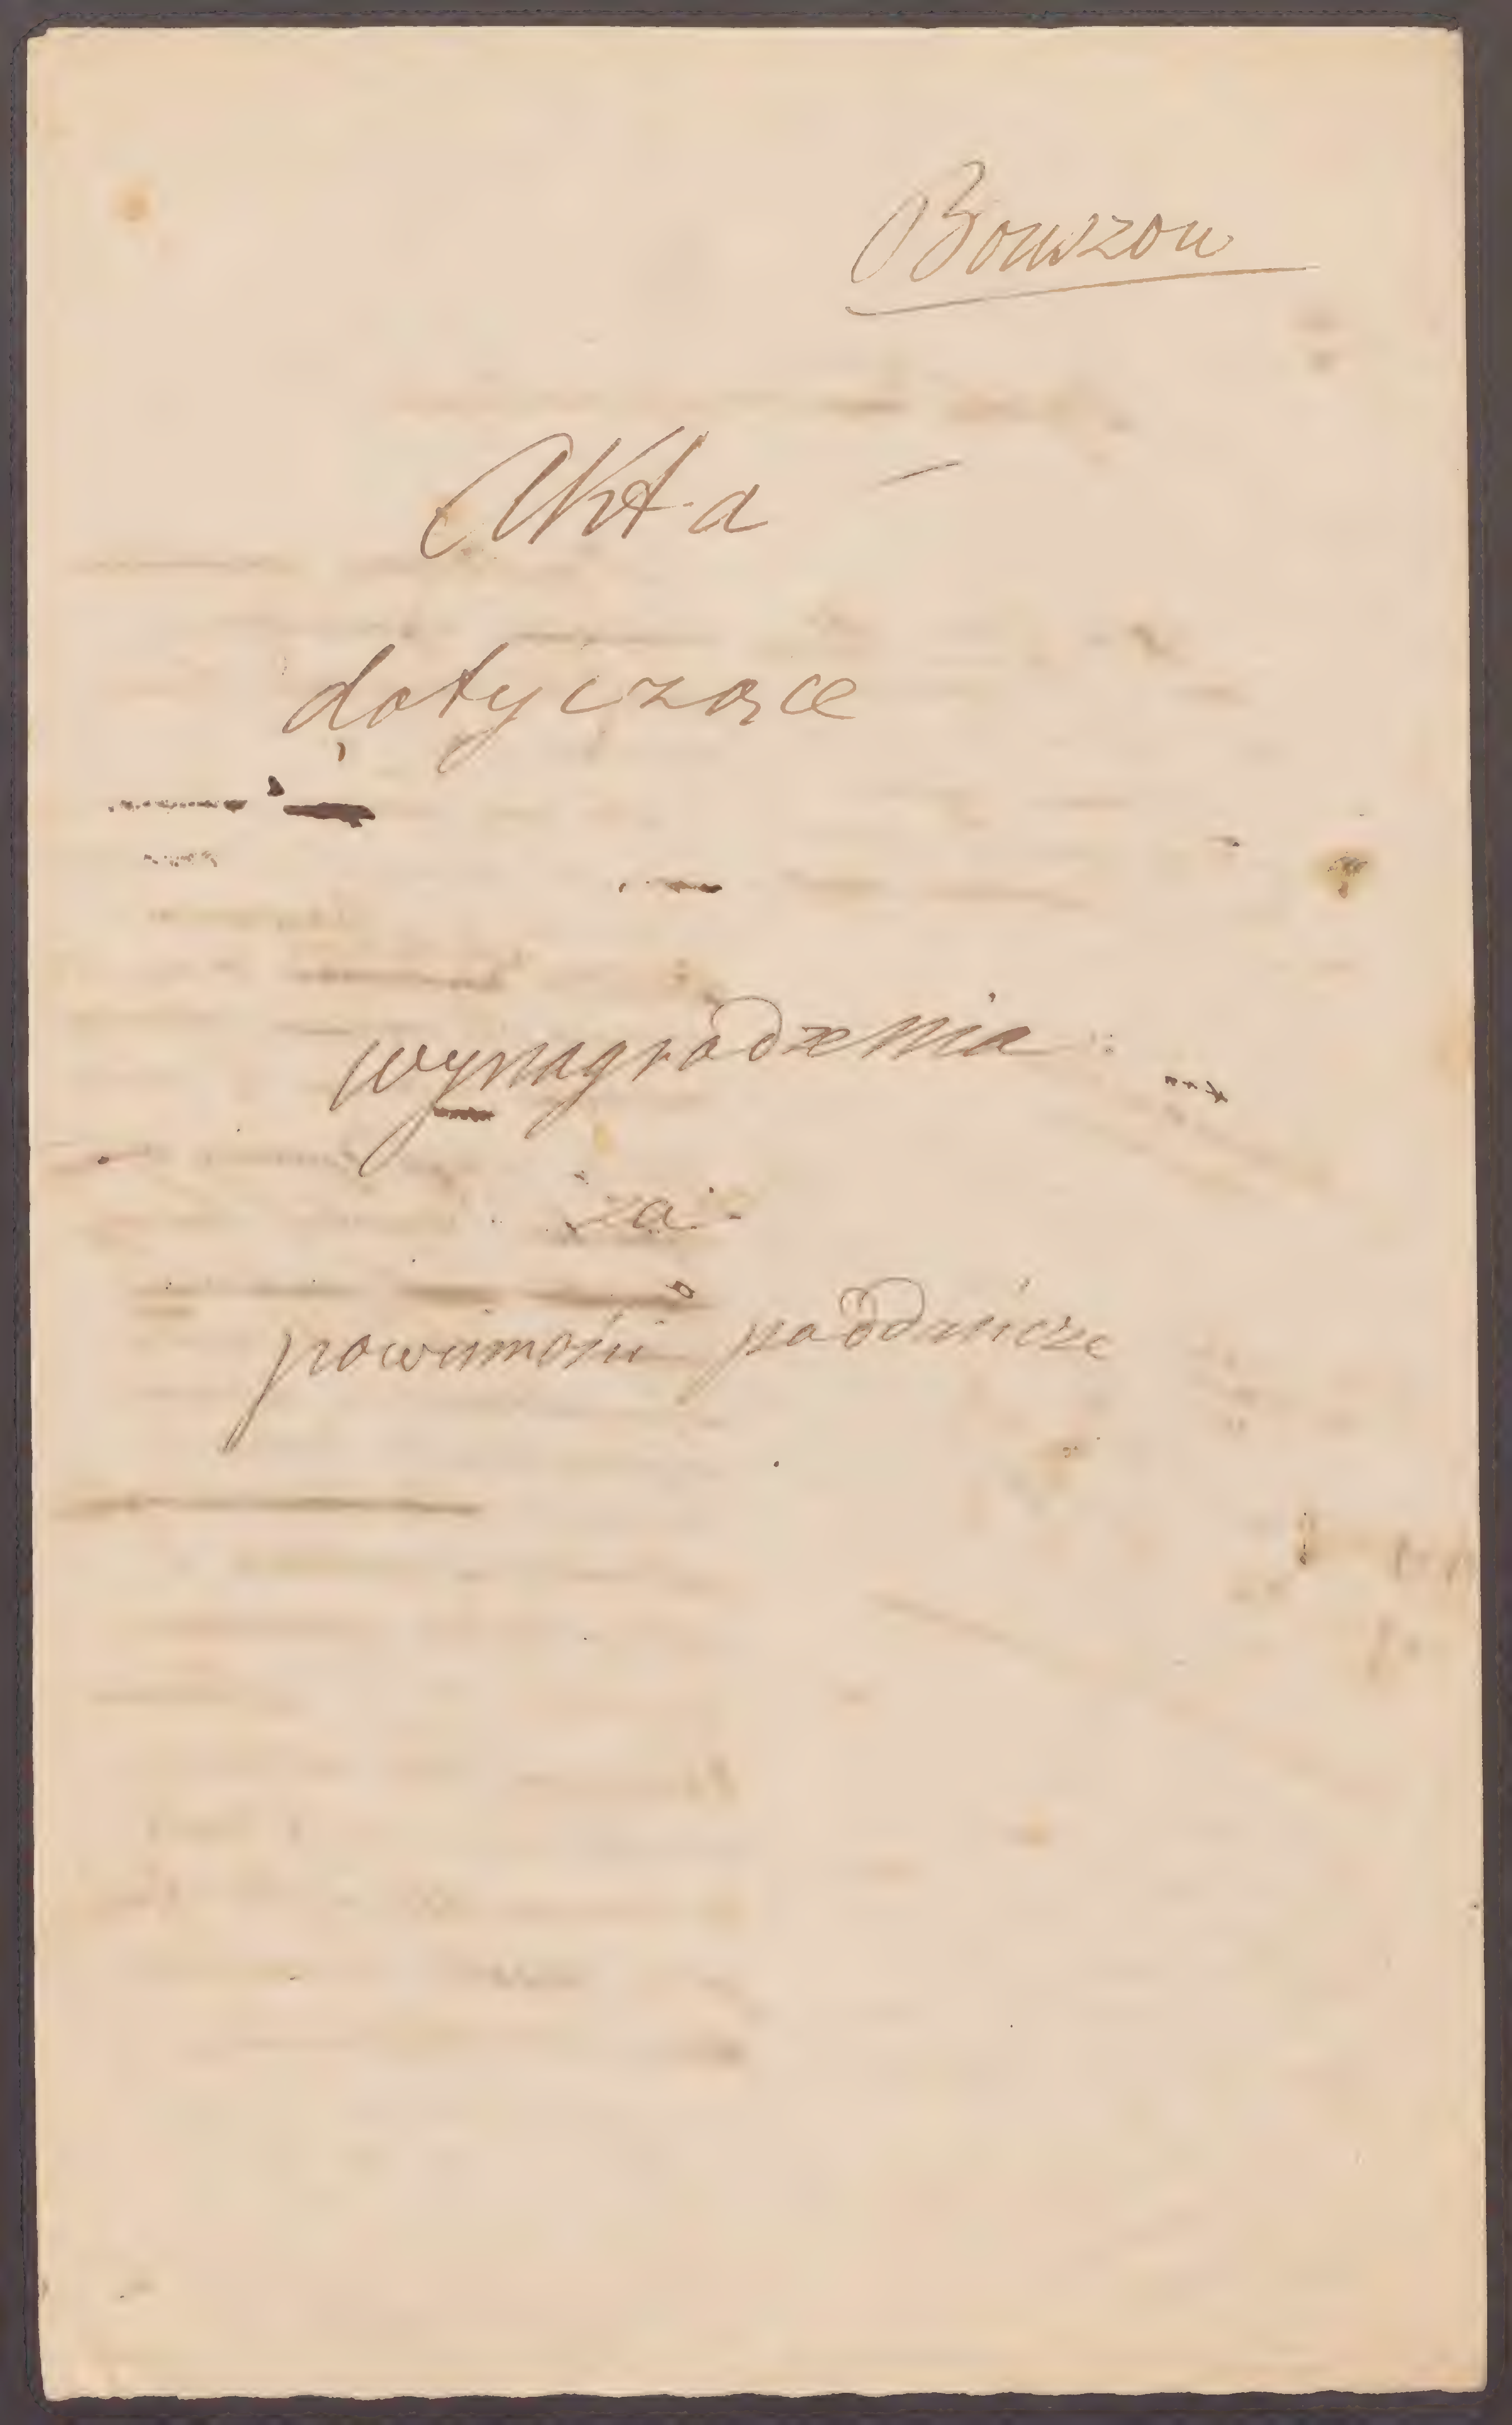 Borwzon
Akta
dotyczące
wynagrodzenia
za
powinności poddańcze